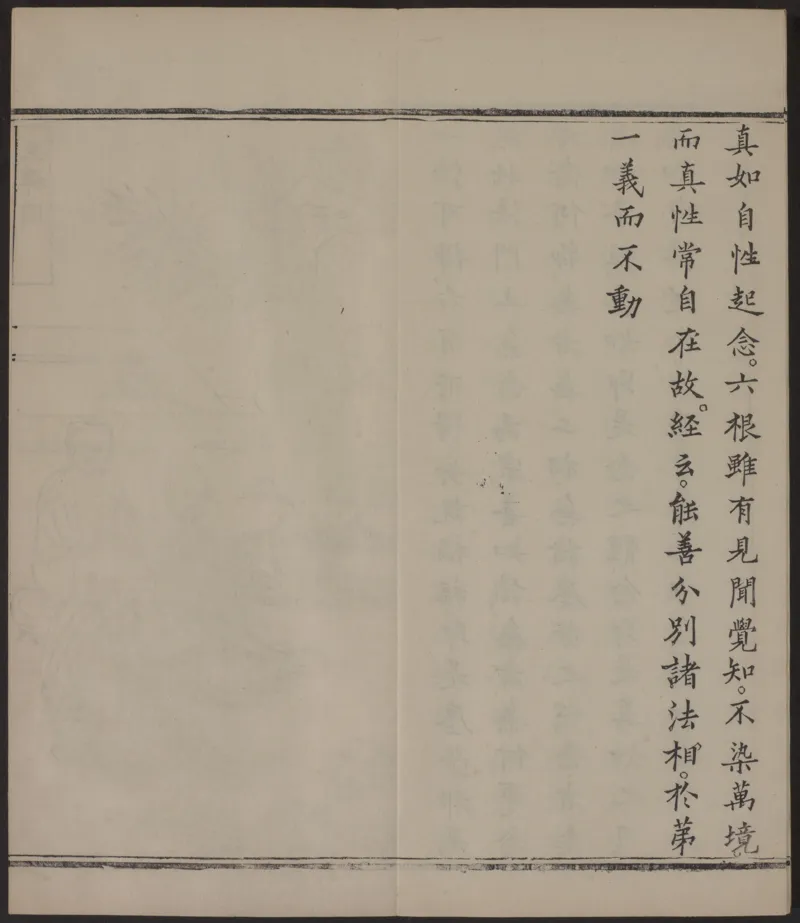 真如自性起念。六根雖有見聞覺知。不染萬境
而真性常自在故。経云。能善分別諸法相。於苐
一義而不動